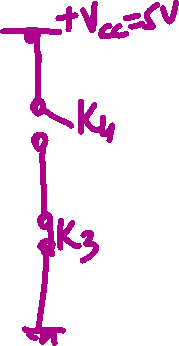 +Vcc=5V
K4
K3